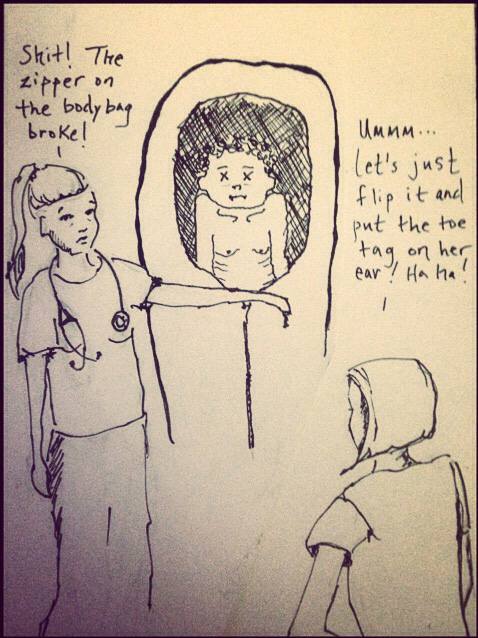 Shit! The
zipper on
the body bag
broke!
Ummm...
let's just
flip it and
put the toe
tag on her
ear! Ha Ha!